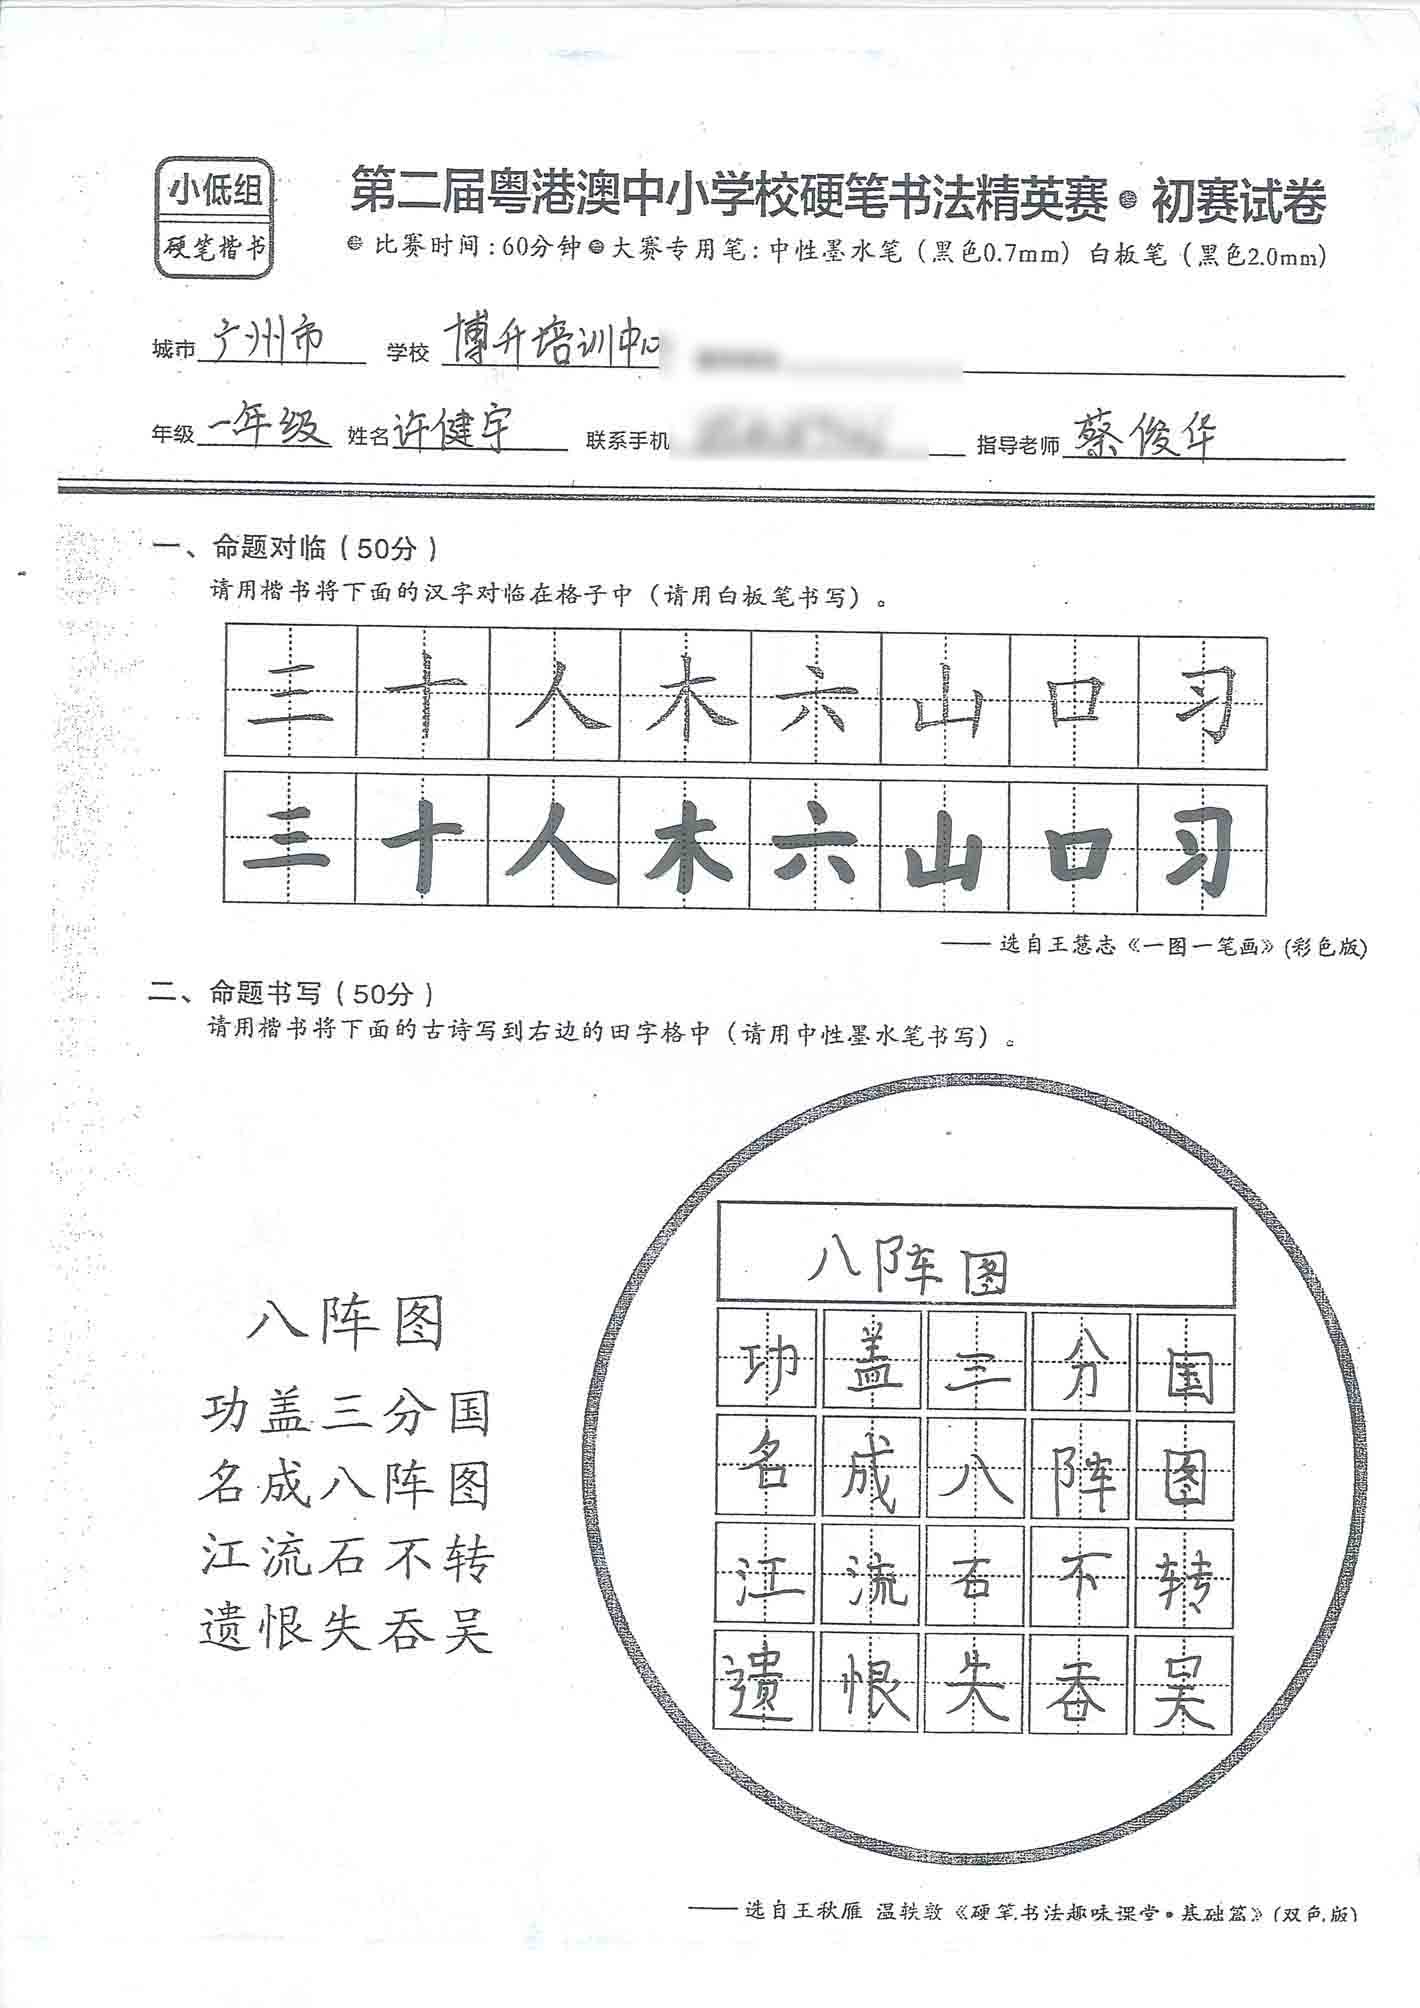 小低组
硬笔楷书
第二届粤港澳中小学校硬笔书法精英赛·初赛试卷
比赛时间:60分钟 大赛专用笔:中性墨水笔(黑色0.7mm) 白板笔(黑色2.0mm)
城市 广州市 学校 博升培训中心
年级 一年级 姓名 许健宇 联系手机 指导老师 蔡俊华
一、命题对临(50分)
请用楷书将下面的汉字对临在格子中(请用白板笔书写)。
三 十 人 木 六 山 口 习
三 十 人 木 六 山 口 习
——选自王慧志《一图一笔画》(彩色版)
二、命题书写(50分)
请用楷书将下面的古诗写到右边的田字格中(请用中性墨水笔书写)。
八阵图
功盖三分国
名成八阵图
江流石不转
遗恨失吞吴
八阵图
功盖三分国
名成八阵图
江流石不转
遗恨失吞吴
——选自王秋雁 温轶敦《硬笔书法趣味课堂·基础篇》(双色版)